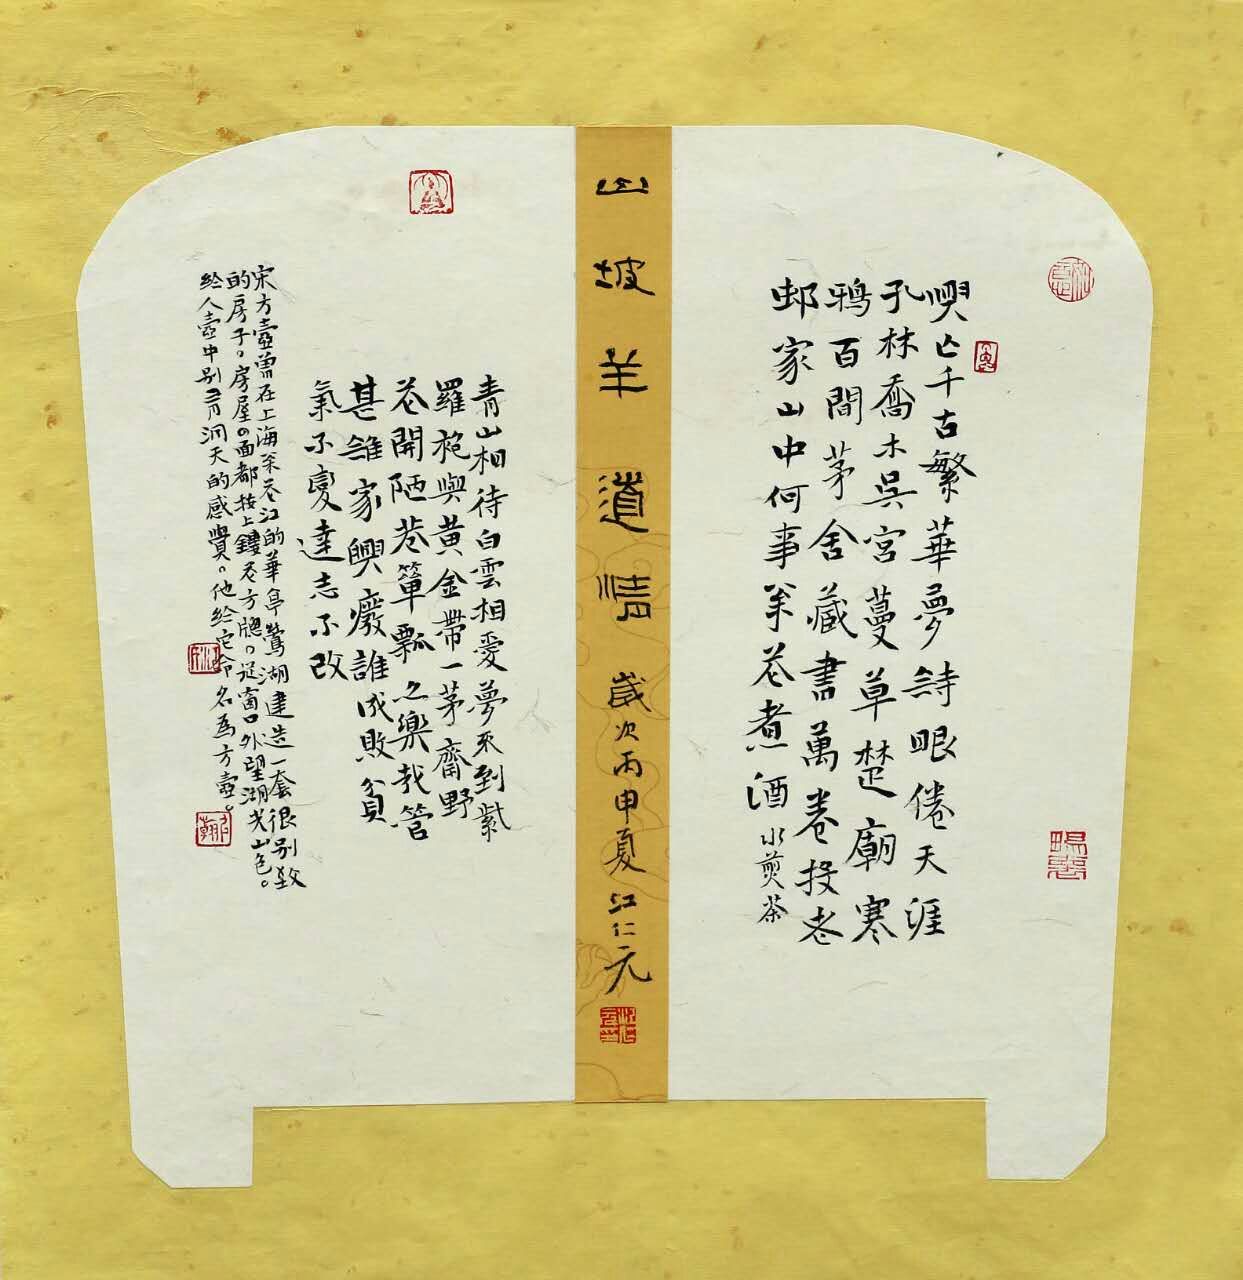 興亡千古繁華夢詩眼倦天涯
孔林喬木吳宮蔓草楚廟寒
鴉百間茅舍藏書萬卷投老
邨家山中何事枀花煮酒水煎茶
山坡羊道情 歲次丙申夏 江仁元
青山相待白雲相愛夢不到紫
羅袍與黃金帶一茅齋野
花開陋巷簞瓢之樂哉管
甚誰家興廢誰成敗貧
氣不變達志不改
宋方壺曾在上海枀花江的華亭鶯湖建造一套很別致
的房子。房屋四面都按上鏤花方牕。從窗口外望湖光山色。
給人壺中別有洞天的感覺。他給它命名為方壺。